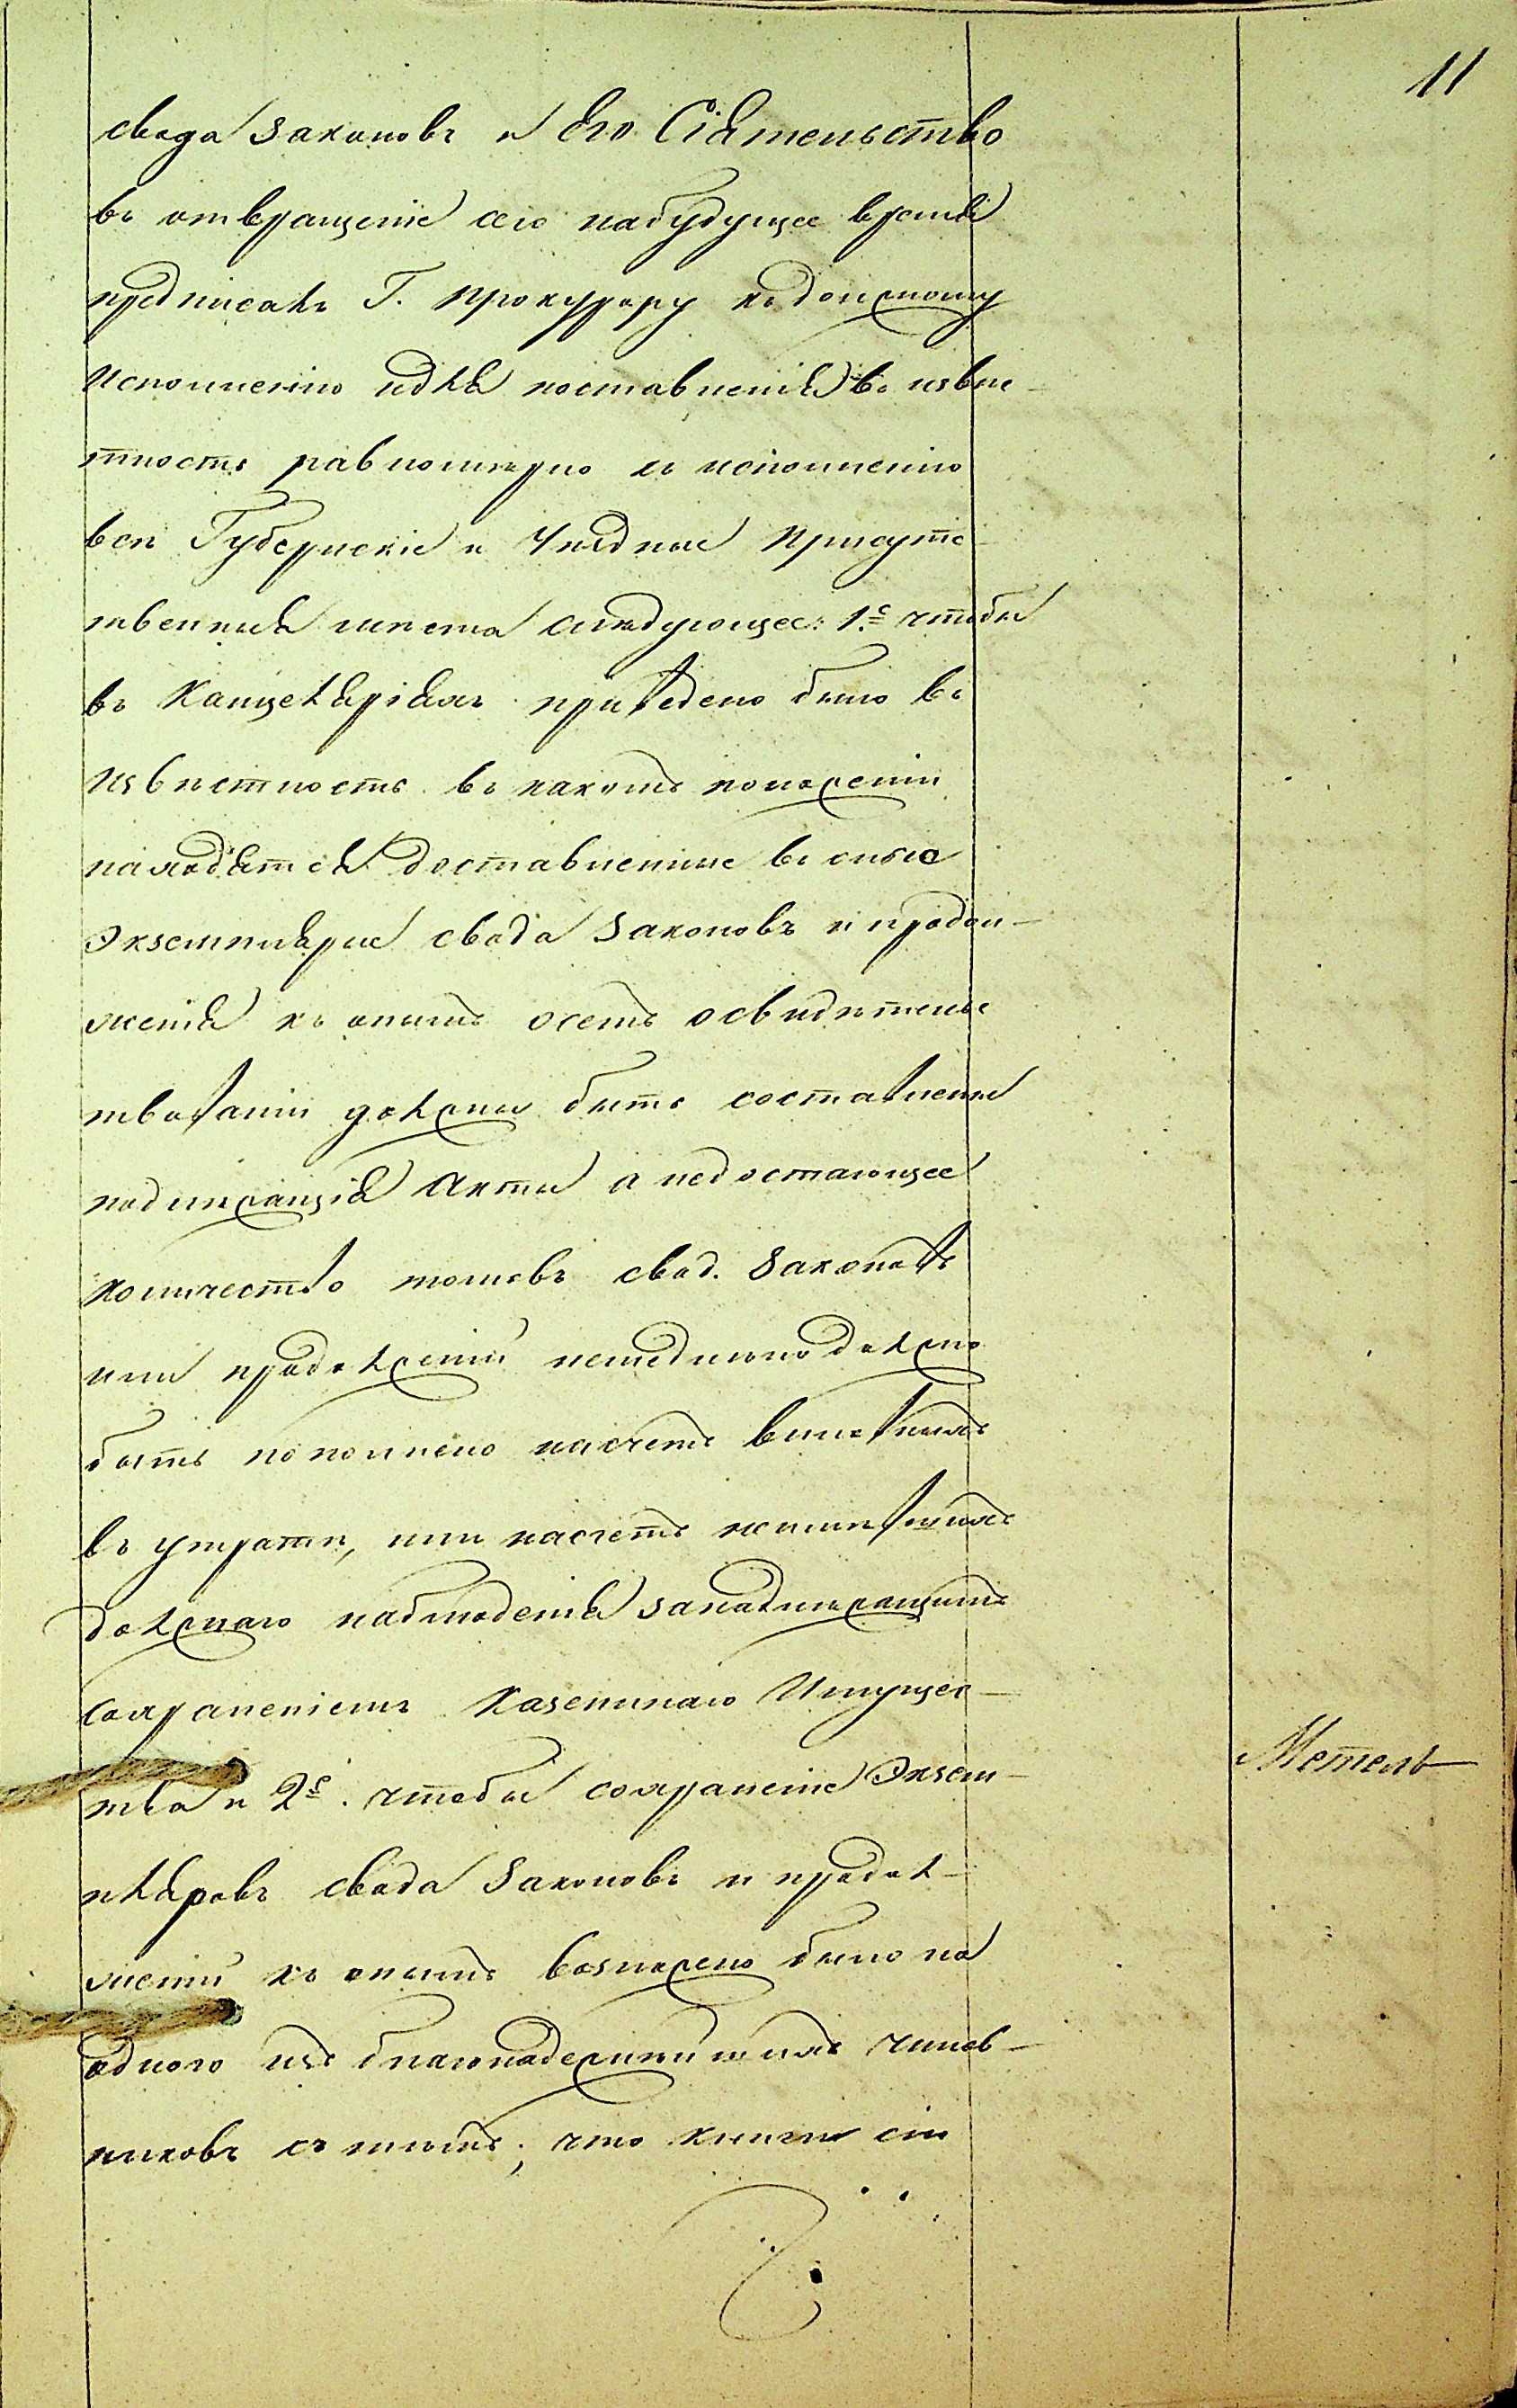 11
свода законовъ и Его Сіятельство
въ отвращеніе сего набудущее время
предписалъ Г. Прокурору къ должному
исполненію идля поставленія въ извѣс-
тность равномѣрно къ исполненію
всѣ Губернскіе и Уѣздные Присутс-
твенныя мѣста слѣдующее: 1.е чтобы
въ Канцеляріяхъ приведено было въ
извѣстность въ какомъ положеніи
находятся доставленные въ оные
Экземпляры свода законовъ и продол-
женія къ онымъ осемъ освидѣтельс
твованіи должны быть составлены
надлежащія Акты а недостающее
количество томовъ свод. законовъ
или продолженій немедленно должно
быть пополнено насчетъ виновныхъ
въ утратѣ, или насчетъ неимѣвшихъ
должнаго наблюденія занадлежащимъ
сохраненіемъ Казеннаго Имущес-
тва и 2е. чтобы сохраненіе Экзем-
пляровъ свода законовъ и продол-
женій къ онымъ возложено было на
одного изъ благонадежнѣйшихъ чинов-
никовъ съ тѣмъ; что книги сіи